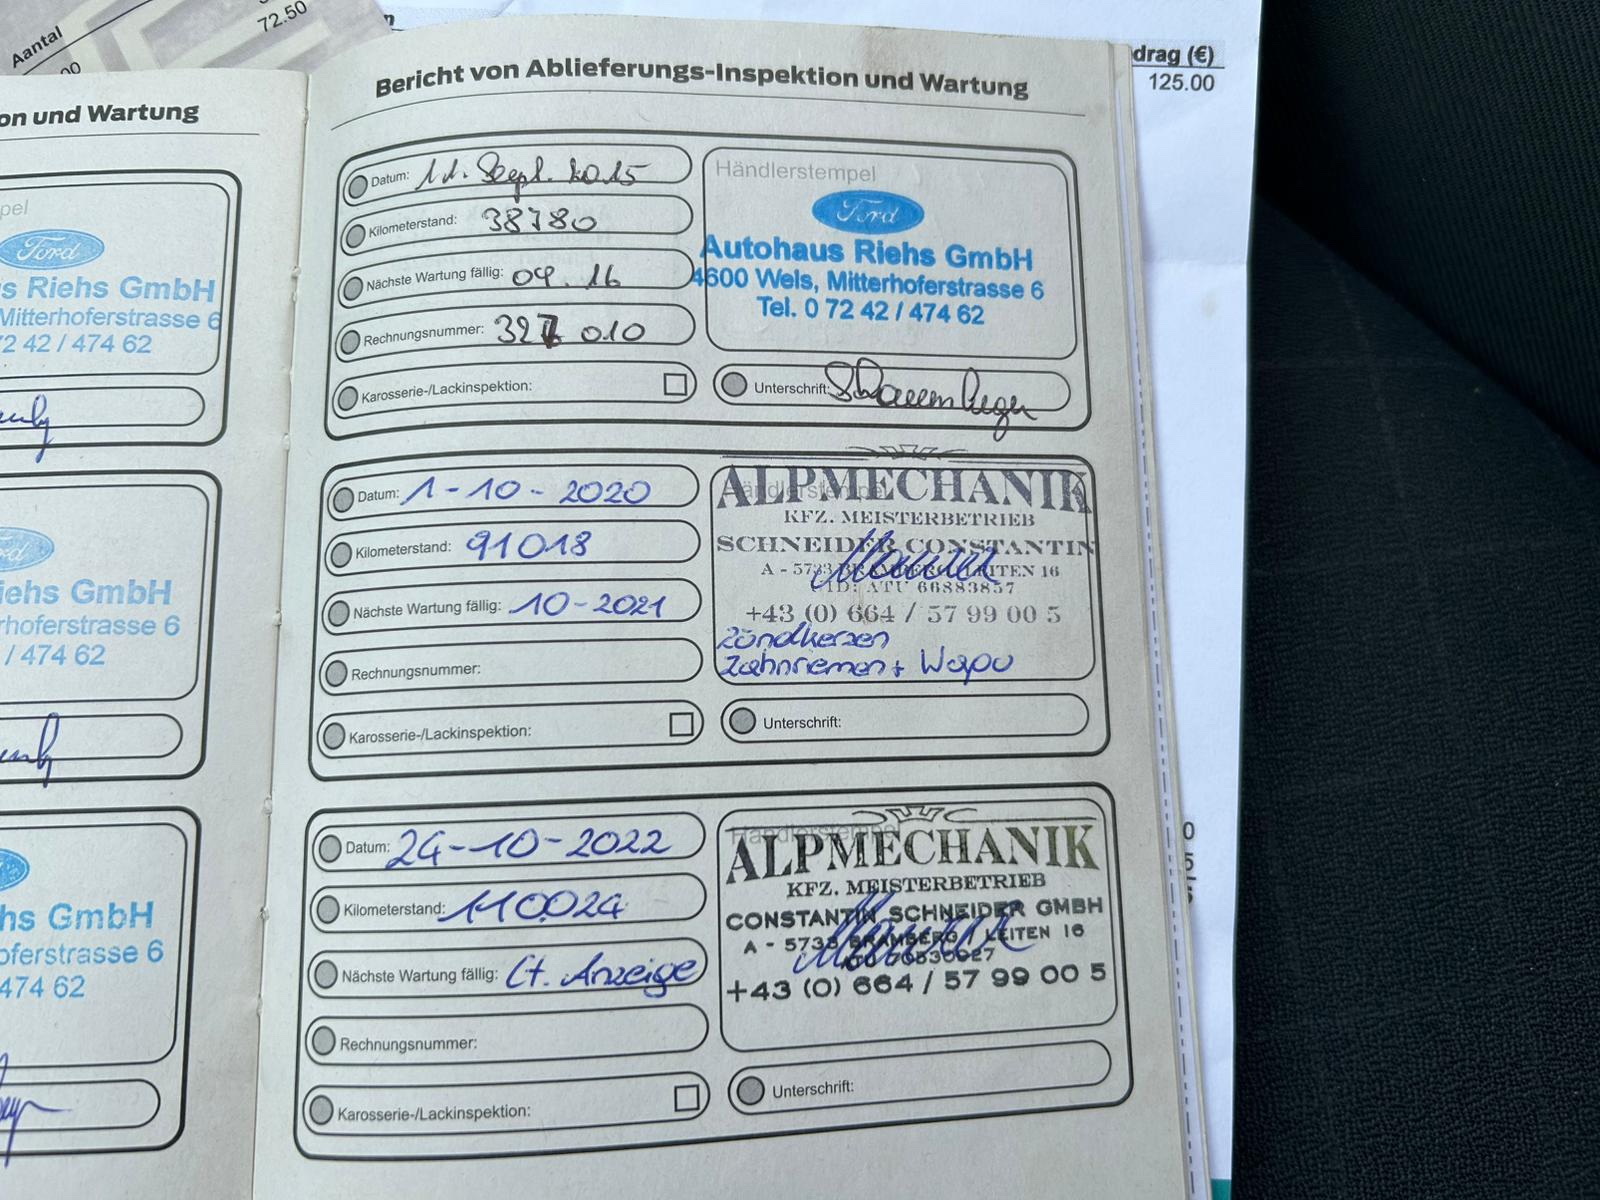 Aantal
72.50
00
n
drag (€)
125.00
on und Wartung
pel
Ford
s Riehs GmbH
Mitterhoferstrasse 6
2 42 / 474 62
iehs GmbH
rhoferstrasse 6
/ 474 62
hs GmbH
oferstrasse 6
474 62
Bericht von Ablieferungs-Inspektion und Wartung
Datum: 11. Sept. 2015
Kilometerstand: 38780
Nächste Wartung fällig: 09. 16
Rechnungsnummer: 327 010
Karosserie-/Lackinspektion:
Händlerstempel
Ford
Autohaus Riehs GmbH
4600 Wels, Mitterhoferstrasse 6
Tel. 0 72 42 / 474 62
Unterschrift:
Datum: 1-10-2020
Kilometerstand: 91018
Nächste Wartung fällig: 10-2021
Rechnungsnummer:
Karosserie-/Lackinspektion:
Händlerstempel
ALPMECHANIK
KFZ. MEISTERBETRIEB
SCHNEIDER CONSTANTIN
A - 5733 BRAMBERG / LEITEN 16
UID: ATU 66883857
+43 (0) 664 / 57 99 00 5
Zündkerzen
Zahnriemen + Wapu
Unterschrift:
Datum: 24-10-2022
Kilometerstand: 110024
Nächste Wartung fällig: Lt. Anzeige
Rechnungsnummer:
Karosserie-/Lackinspektion:
Händlerstempel
ALPMECHANIK
KFZ. MEISTERBETRIEB
CONSTANTIN SCHNEIDER GMBH
A - 5733 BRAMBERG / LEITEN 16
+43 (0) 664 / 57 99 00 5
Unterschrift: